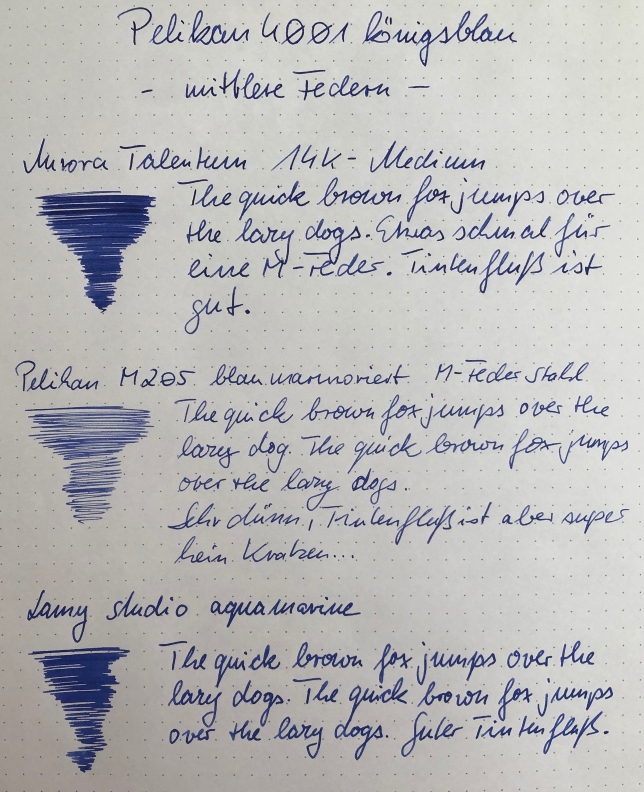 Pelikan 4001 königsblau
- mittlere Federn -
Aurora Talentum 14K - Medium
The quick brown fox jumps over
the lazy dogs. Etwas schmal für
eine M-Feder. Tintenfluß ist
gut.
Pelikan M205 blau marmoriert M-Feder Stahl
The quick brown fox jumps over the
lazy dog. The quick brown fox jumps
over the lazy dogs.
Sehr dünn, Tintenfluß ist aber super
kein Kratzen...
Lamy studio aquamarine
The quick brown fox jumps over the
lazy dogs. The quick brown fox jumps
over the lazy dogs. Guter Tintenfluß.